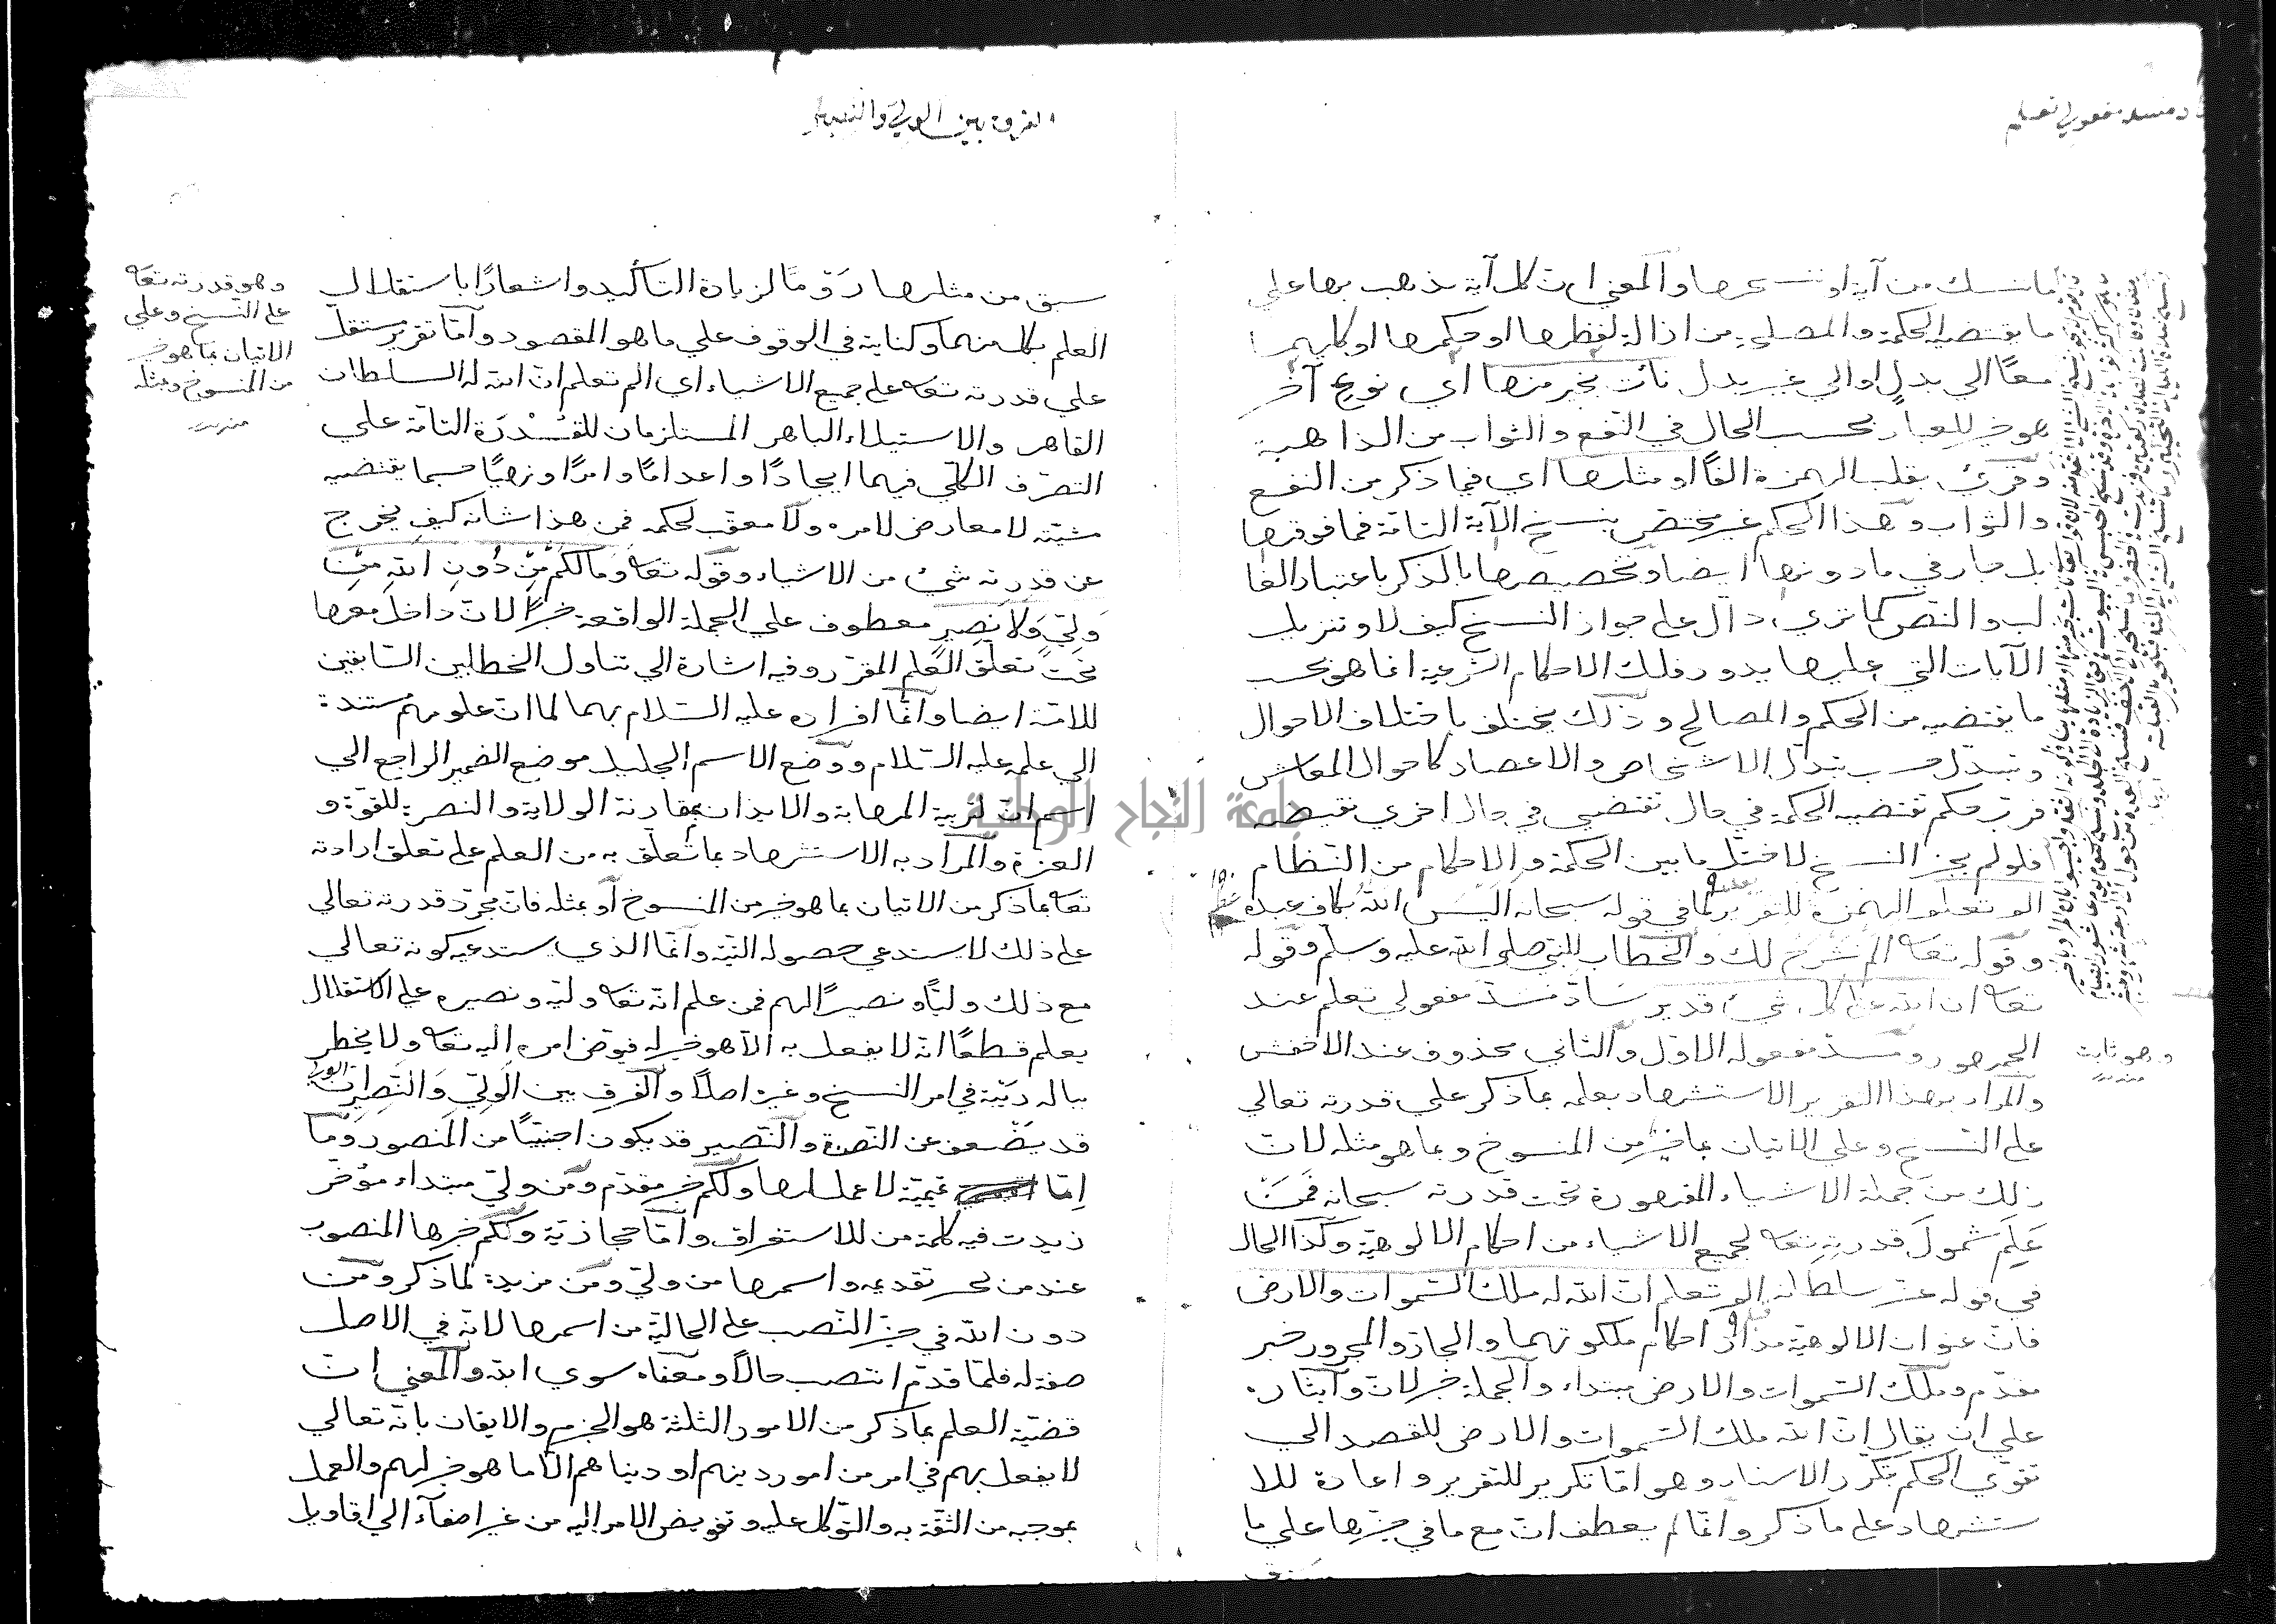 د مسد مفعولي تعلم
ما ننسك من آية او ننسخها والمعنى ان كل آية نذهب بها على
ما يقتضيه الحكمة والمصلحة من ازالة لفظها او حكمها او كليهما
معًا الي بدل او الي غير بدل نأت بخير منها اي نوع آخر
هو خير للعباد بحسب الحال في النفع والثواب من الذاهبة
وقرئ بقلب الهمزة الفًا او مثلها اي فيما ذكر من النفع
والثواب وهذا الحكم غير مختص بنسخ الآية التامة فما فوقها
بل جار في ما دونها ايضا وتخصيصها بالذكر باعتبار الغا
لب والنص كما تري دال علي جواز النسخ كيف لا وتنزيل
الآيات التي عليها يدور فلك الاحكام الشرعية انما هو بحسب
ما يقتضيه من الحكم والمصالح وذلك يختلف باختلاف الاحوال
ويتبدل حسب تبدل الاشخاص والاعصار كاحوال المعاش
فرب حكم تقتضيه الحكمة في حال تقتضي في حال اخري نقيضه
فلو لم يجز النسخ لاختل ما بين الحكمة والاحكام من النظام
الم تعلم الهمزة للتقرير كما في قوله سبحانه اليس الله بكاف عبده
وقوله تعا الم نشرح لك والخطاب للنبي صلى الله عليه وسلم وقوله
تعا ان الله على كل شيء قدير سادّ مسدّ مفعولي تعلم عند
الجمهور ومسدّ مفعوله الاول والثاني محذوف عند الاخفش
والمراد بهذا التقرير الاستشهاد بعلمه بما ذكر علي قدرته تعالي
على النسخ وعلي الاتيان بما خير من المنسوخ وبما هو مثله لان
ذلك من جملة الاشياء المقهورة تحت قدرته سبحانه فمن
عَلِمَ شمولَ قدرتِهِ تعا لجميع الاشياء من احكام الالوهية وكذا الحال
في قوله عز سلطانه الم تعلم ان الله له ملك السموات والارض
فان عنوان الالوهية مدار احكام ملكوتهما والجار والمجرور خبر
مقدم وملك السموات والارض مبتداء والجملة خبر لان وآيثاره
علي ان يقال ان لله ملك السموات والارض للقصد الي
تقوي الحكم بتكرر الاسناد وهو امّا تكرير للتقرير واعادة للا
ستشهاد على ما ذكر وانما لم يعطف ان مع ما في حيزها علي ما
سبق
وهو ثابت
الفرق بين الولي والنصير
سبق من مثلها رَوْمًا لزيادة التأكيد واشعارًا باستقلال
العلم بكل منهما وكناية في الوقوف علي ما هو المقصود وامّا تقرير مستقل
علي قدرته تعا على جميع الاشياء اي الم تعلم ان الله له السلطان
القاهر والاستيلاء الباهر المستلزمان للقُدْرَة التامّة علي
التصرف الكلّي فيهما ايجادًا واعدامًا وامرًا ونهيًا حسبما يقتضيه
مشيّته لا معارض لامره ولا معقب لحكمه فمن هذا شانه كيف يخرج
عن قدرته شيئ من الاشياء وقوله تعا وَمَا لَكُمْ مِنْ دُونِ اللّهِ مِنْ
وَلِيّ وَلَا نَصِيرٍ معطوف علي الجملة الواقعة خبرًا لان داخل معها
تحت تعلق العلم المقرر وفيه اشارة الي تناول الخطابين السابقين
للامّة ايضا وانما افراده عليه السلام بهما لما ان علومهم مستندة
الي علمه عليه السلام ووضع الاسم الجليل موضع الضمير الراجع الي
اسم ان لتربية المهابة والايذان بمقارنة الولاية والنصرة للقوة و
العزة والمراد به الاستشهاد بما تعلق به من العلم على تعلق ارادته
تعا بما ذكر من الاتيان بما هو خير من المنسوخ أو بمثله فان مجرد قدرته تعالي
على ذلك لا يستدعي حصوله البتة وانما الذي يستدعيه كونه تعالي
مع ذلك وليًا ونصيرًا لهم فمن علم انّه تعا وليّه ونصيره على الاستقلال
يعلم قطعًا انّه لا يفعل به الّا هو خير له فيفوض امره اليه تعا ولا يخطر
بباله ريبة في امر النسخ وغيره اصلًا والفرق بين الوليّ والنصير ان الولي
قد يضعف عن النصرة والنصير قد يكون اجنبيًا من المنصور وما
اِمّا تميميّة لا عمل لها ولكم خبر مقدّم ومن وليّ مبتداء مؤخر
زيدت فيه كلمة من للاستغراق وامّا حجازيّة ولكم خبرها المنصوب
عند من يجيز تقديمه واسمها من وليّ ومن مزيدة لما ذكر ومن
دون الله في حيز النصب على الحالية من اسمها لانّه في الاصل
صفة له فلمّا قدّم انتصب حالًا ومعناه سوي الله والمعني ان
قضيّة العلم بما ذكر من الامور الثلثة هو الجزم والايقان بانّه تعالي
لا يفعل بهم في امر من امور دينهم او دنياهم الّا ما هو خير لهم والعمل
بموجبه من الثقة به والتوكل عليه وتفويض الامر اليه من غير اصغاء الي اقاويل
وهو قدرته تعا
على النسخ وعلي
الاتيان بما هو خير
من المنسوخ وبمثله
جامعة النجاح الوطنية